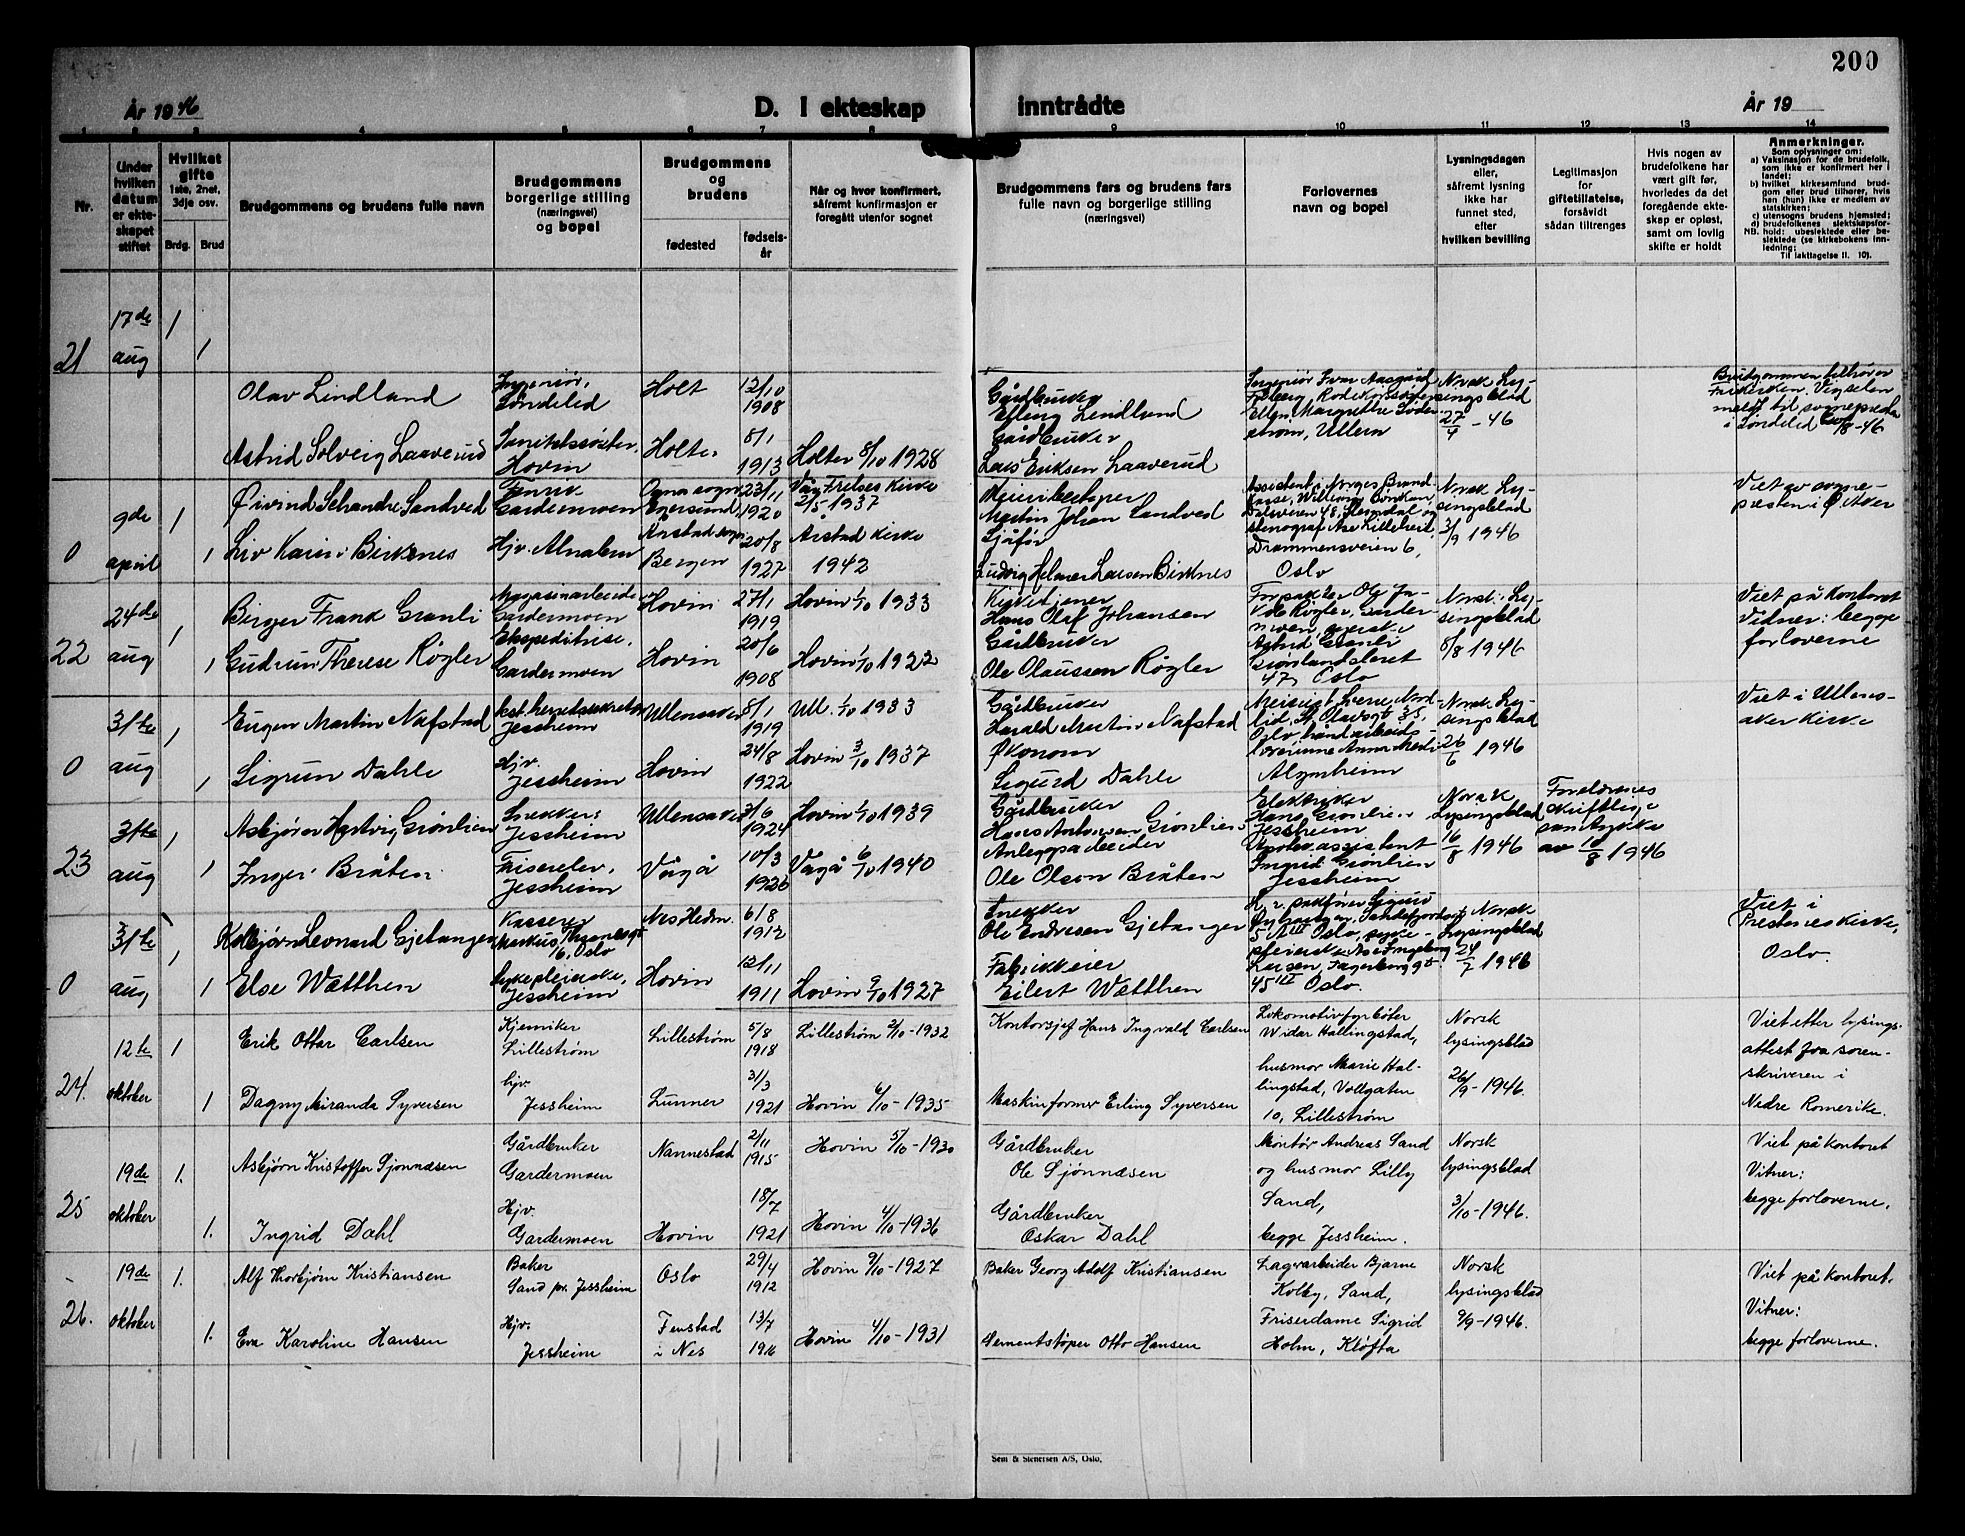 200
År 1946
D. I ekteskap inntrådte
År 19
1 2 3 4 5 6 7 8 9 10 11 12 13 14
Nr.
Under hvilken datum er ekteskapet stiftet
Hvilket gifte
1ste, 2net, 3dje osv.
Brdg. Brud
Brudgommens og brudens fulle navn
Brudgommens borgerlige stilling (næringsvei) og bopel
Brudgommens og brudens
fødested
fødselsår
Når og hvor konfirmert, såfremt konfirmasjon er foregått utenfor sognet
Brudgommens fars og brudens fars fulle navn og borgerlige stilling (næringsvei)
Forlovernes navn og bopel
Lysningsdagen eller, såfremt lysning ikke har funnet sted, efter hvilken bevilling
Legitimasjon for giftetillatelse, forsåvidt sådan tiltrenges
Hvis nogen av brudefolkene har vært gift før, hvorledes da det foregående ekteskap er opløst, samt om lovlig skifte er holdt
Anmerkninger.
Som oplysninger om:
a) Vaksinasjon for de brudefolk, som ikke er konfirmert her i landet;
b) hvilket kirkesamfund brudgom eller brud tilhører, hvis han (hun) ikke er medlem av statskirken;
c) utensogns brudens hjemsted;
d) brudefolkenes slektskapsforhold: ubeslektede eller beslektede (se kirkebokens innledning;
NB. Til iakttagelse II. 10).
21
17de aug
1
1
Olav Lindland
Ingeniør, Søndeled
Holt
12/10 1908
Gårdbruker
Lindland
Norsk Lysingsblad 27/4 - 46
Brudgommen tilhører Frikirken. Vigselen meldt til sognepresten i Søndeled
Astrid Solveig Laaverud
Sanitetssøster, Hovin
Holter
8/1 1913
Holter 8/10 1928
Gårdbruker
Lars Eriksen Laaverud
0
9de april
1
1
Øivind Schandre Sandved
Fenrik Gardermoen
Ogna sogn Egersund
23/11 1920
Vår Frelses Kirke 2/5 1937
Martin Johan Sandved
Norsk Lysingsblad 3/9 1946
Viet av sognepresten i Ø. Aker
Liv Karin Birknes
Hjv. Alnabru
Årstad sogn Bergen
20/8 1927
Årstad Kirke 1942
Sjåfør
Ludvig Helmer Larsen Birknes
Drammensveien 6, Oslo
22
24de aug
1
1
Birger Frank Granli
Magasinarbeider Gardermoen
Hovin
27/1 1919
Hovin 1/10 1933
Kirketjener
Hans Olaf Johansen
Norsk Lysingsblad 5/8 1946
Viet på kontoret
Vidner: begge forloverne
Gudrun Therese Røgler
Ekspeditrise, Gardermoen
Hovin
20/6 1908
Hovin 1/10 1922
Gårdbruker
Ole Olaussen Røgler
Astrid Granli Grønlandsleret 47, Oslo
0
31te aug
1
1
Eugen Martin Nafstad
Jessheim
Ullensaker
8/1 1919
Ull. 1/10 1933
Gårdbruker
Harald Martin Nafstad
Norsk Lysingsblad 26/6 1946
Viet i Ullensaker kirke
Sigrun Dahle
Hjv. Jessheim
Hovin
24/8 1922
Hovin 3/10 1937
Økonom
Sigurd Dahle
Algarheim
23
31te aug
1
1
Asbjørn Hartvig Grønlien
Snekker, Jessheim
Ullensaker
3/6 1924
Hovin 1/10 1939
Gårdbruker
Hans Antonsen Grønlien
Elektriker Hans Grønlien Jessheim
Norsk Lysingsblad 16/8 1946
Foreldrenes skriftlige samtykke av 10/8 1946
Inger Bråten
Friserelev, Jessheim
Vågå
10/3 1926
Vågå 6/10 1940
Anleggsarbeider
Ole Olson Bråten
Apotek.assistent Ingrid Grønlien Jessheim
0
31te aug
1
1
Kolbjørn Leonard Gjetanger
Kasserer
Oslo
Nes Hedm.
6/8 1912
Snekker
Ole Endresen Gjetanger
Norsk Lysingsblad 24/7 1946
Viet i Prestenes kirke, Oslo.
Else Wætthen
Sykepleierske, Jessheim
Hovin
12/11 1911
Hovin 9/10 1927
Fabrikkeier
Eilert Wætthen
45 III Oslo.
24.
12te oktober
1
1
Erik Ottar Carlsen
Kjemiker Lillestrøm
Lillestrøm
5/8 1918
Lillestrøm 2/10-1932
Kontorsjef Hans Ingvald Carlsen
Lokomotivfyrbøter Widar Hallingstad,
husmor Marie Hallingstad, Vollgaten 10, Lillestrøm
Norsk lysingsblad 26/9-1946.
Viet etter lysingsattest fra sorenskriveren i Nedre Romerike.
Dagny Miranda Syversen
Hjv. Jessheim
Lunner
3/3 1921
Hovin 6/10-1935
Maskinformer Erling Syversen
25
19de oktober
1.
1.
Asbjørn Kristoffer Sjonnæsen
Gårdbruker Gardermoen
Nannestad
2/11 1915
Hovin 5/10-1930
Gårdbruker
Ole Sjønnæsen
Montør Andreas Sand og husmor Lilly Sand, begge Jessheim.
Norsk lysingsblad 3/10-1946.
Viet på kontoret
Vitner: begge forloverne.
Ingrid Dahl
Hjv. Gardermoen
Hovin
18/7 1921
Hovin 4/10-1936
Gårdbruker
Oskar Dahl
26.
19de oktober
1.
1.
Alf Thorbjørn Kristiansen
Baker Sand pr. Jessheim
Oslo
29/4 1912
Hovin 9/10-1927
Baker Georg Adolf Kristiansen
Lagerarbeider Bjarne Kolby, Sand,
Friserdame Sigrid Holm, Kløfta
Norsk lysingsblad 9/9-1946.
Viet på kontoret.
Vitner: begge forloverne.
Eva Karoline Hansen
Hjv. Jessheim
Fenstad i Nes
13/7 1916
Hovin 4/10-1931
Sementstøper Otto Hansen
Sem & Stenersen A/S, Oslo.